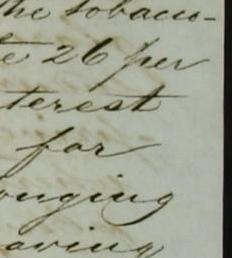 the tobacco-
te 26 per
terest
for
onging
aving